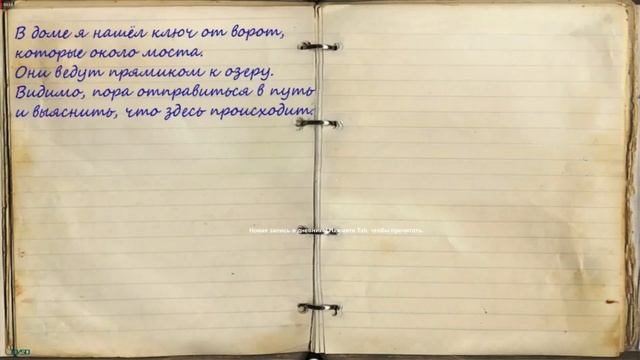 В доме я нашёл ключ от ворот,
которые около моста.
Они ведут прямиком к озеру.
Видимо, пора отправиться в путь
и выяснить, что здесь происходит.
Новая запись в дневнике! Нажмите Tab, чтобы прочитать.